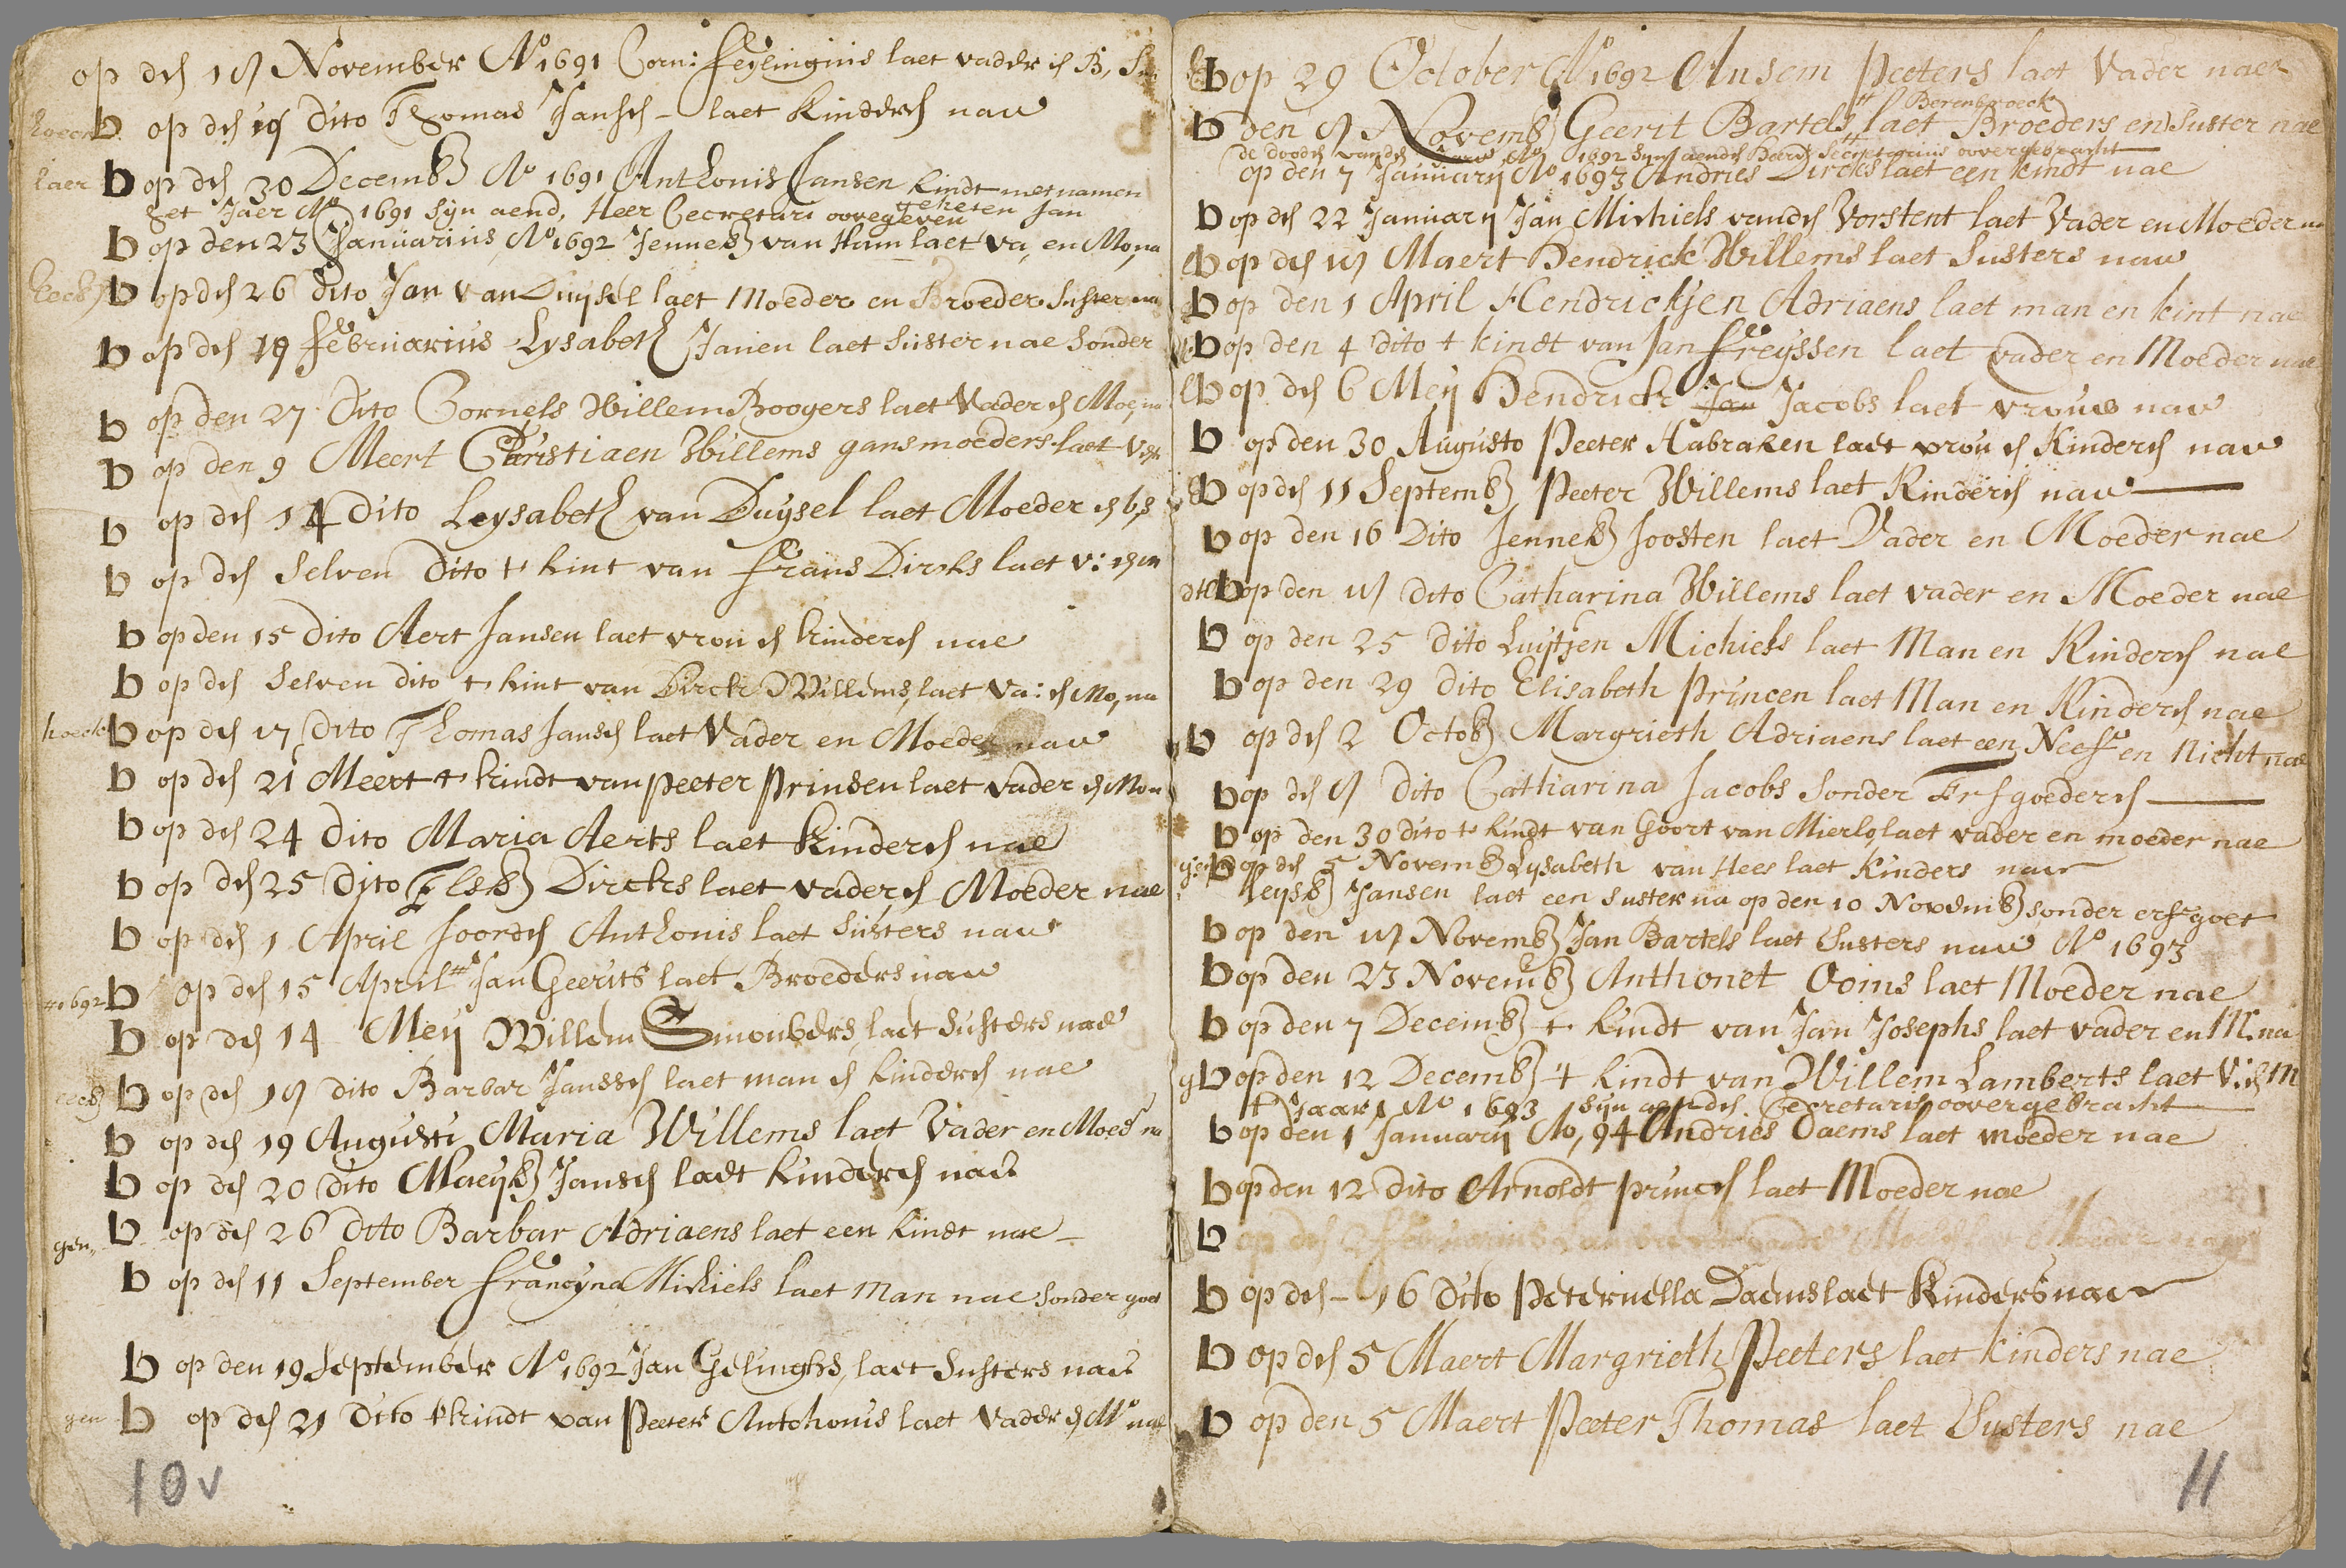 op den 18 November Ao 1691 Corn: Feylingius laet vader en B, Su
b op den 19 dito Thomas Jansen - laet Kinderen nae
laer b op den 30 Decemb Ao 1691 Anthonis Jansen kindt met namen
geheten Jan
Het Jaer Ao 1691 syn aend, Heer Secretari overegeven
b op den 23 Januarius, Ao 1692 Jenneb van Ham laet va, en Mo, na
b op den 26 dito Jan van Duijsel laet Moeder en Broeder Suster na
b op den 19 februarius Lysabeth Janen laet suster nae sonder
b op den 27 Dito Cornels Willem Boogers laet Vader en Moe, na
b op den 9 Meert Christiaen Willems gansmoeders laet
b op den 14 dito Leysabeth van Duysel laet Moeder en b, s
b op den Selven dito t kint van frans Dircks laet v: en m
b op den 15 dito Aert Jansen laet vrou en kinderen nae
b op den Selven dito t kint van Dirck Willems, laet va: en Mo, na
hoeck b op den 17 dito Thomas Jansen laet Vader en Moeder nae
b op den 21 Meert t kindt van Peeter Prinsen laet vader en Mo n
b op den 24 dito Maria Aerts laet Kinderen nae
b op den 25 dito Elsb Dircks laet vader en Moeder nae
b op den 1 April Joorden Anthonis laet susters nae
Ao 1692 b op den 15 April Jan Geerits laet Broeders nae
b op den 14 Meij Willem Smonbers, laet Susters nae
b op den 18 dito Barbar Janssen laet man en kinderen nae
b op den 19 Augusti Maria Willems laet Vader en Moedr na
b op den 20 dito Maeijb Jansen laet kinderen nae
gen, b op den 26 dito Barbar Adriaens laet een kindt nae -
b op den 11 September francyna Michiels laet Man nae sonder goet
b op den 19 September Ao 1692 Jan Gelinghs, laet Susters nae
gen b op den 21 Dito t kindt van Peeter Antohonis laet Vader en Mr nae
10v
b op 29 October Ao 1692 Ansem Peeters laet Vader nae
Berenbroeck
b den 8 Novemb Geerit Bartels laet Broeders en Suster nae
de dooden vanden Jaere Ao 1692 syn aenden Heere Secretarius oovergebracht
op den 7 Januarij Ao 1693 Andries Dircks laet een kindt nae
b op den 22 Januarij Jan Michiels vanden Vorstent laet Vader en Moeder na
b op den 18 Maert Hendrick Willems laet Susters nae
b op den 1 April Hendrickjen Adriaens laet man en kint nae
b op den 4 dito t kindt van Jan freyssen laet vader en Moeder nae
b op den 6 Meij Hendrick Jan Jacobs laet vrouw nae
b op den 30 Augusto Peeter Habraken laet vrou en Kinderen nae
b op den 11 Septemb Peeter Willems laet Kinderen nae
b op den 16 Dito Jenneb Joosten laet Vader en Moeder nae
b op den 18 dito Catharina Willems laet vader en Moeder nae
b op den 25 dito Luytjen Michiels laet Man en Kinderen nae
b op den 29 dito Elisabeth Princen laet Man en Kinderen nae
b op den 2 Octob Margrieth Adriaens laet een Neef en Nicht nae
b op den 8 dito Catharina Jacobs Sonder Erfgoederen
b op den 30 dito t kindt van Goort van Mierlo, laet vader en moeder nae
b op den 5 Novemb Lysabeth van Hees laet Kinders nae
leysb Jansen laet een suster na op den 10 Novemb sonder erfgoet
b op den 18 Novemb Jan Bartels laet Susters nae Ao 1693
b op den 23 Novemb Anthonet Ooms laet Moeder nae
b op den 7 Decemb t kindt van Jan Josephs laet vader en M. na
b op den 12 Decemb 't kindt van Willem Lamberts laet V: en M
t Jaar Ao 1693 syn aenden Secretaris oovergebracht
b op den 1 Januarij Ao, 94 Andries Daems laet moeder nae
b op den 12 dito Arnoldt princen laet Moeder nae
b op den 2 februarius
b op den - 16 Dito Peternella Daems laet Kinders nae
b op den 5 Maert Margrieth Peeters laet kinders nae
b op den 5 Maert Peeter Thomas laet Susters nae
11